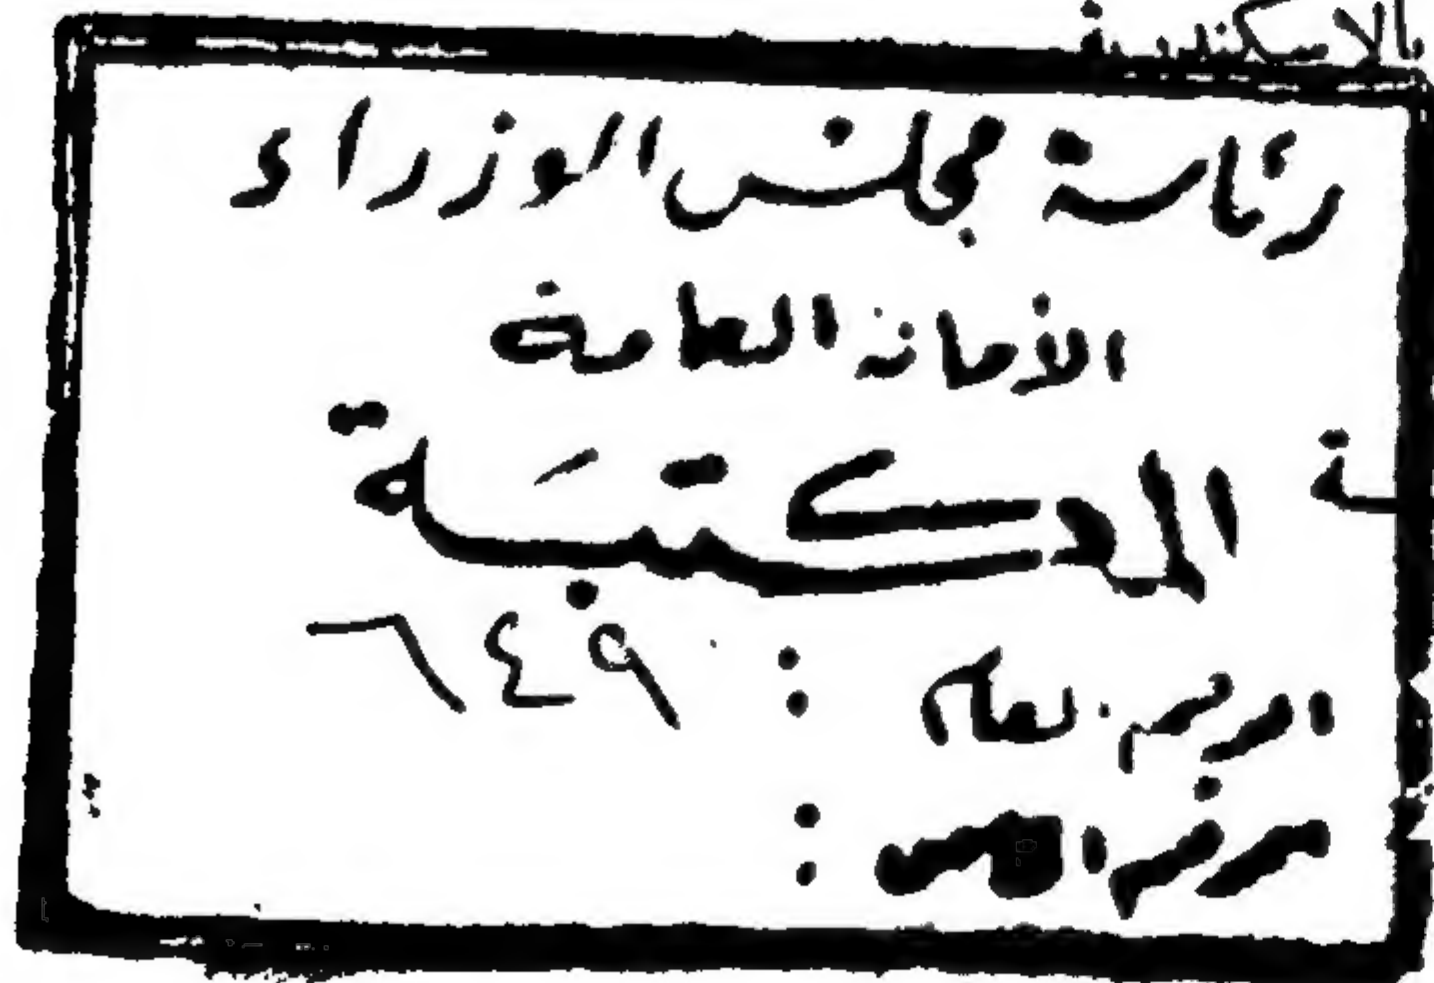 بالاسكندرية
رئاسة مجلس الوزراء
الأمانة العامة
المكتبة
الرقم العام : ٦٤٩